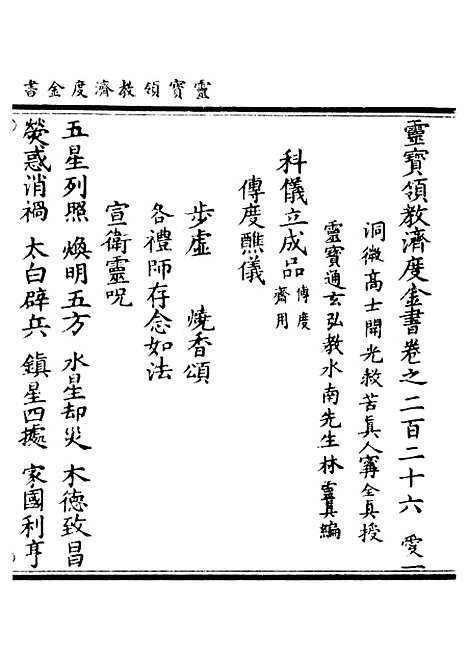 靈寳領教濟度金書
靈寳領教濟度金書卷之二百二十六 愛一
洞微高士開光救苦眞人寗全眞授
靈寳通玄弘教水南先生林靈眞編
科儀立成品 傳度齋用
傳度醮儀
步虛 燒香頌
各禮師存念如法
宣衛靈呪
五星列照 煥明五方 水星却灾 木德致昌
熒惑消禍 太白辟兵 鎮星四據 家國利亨